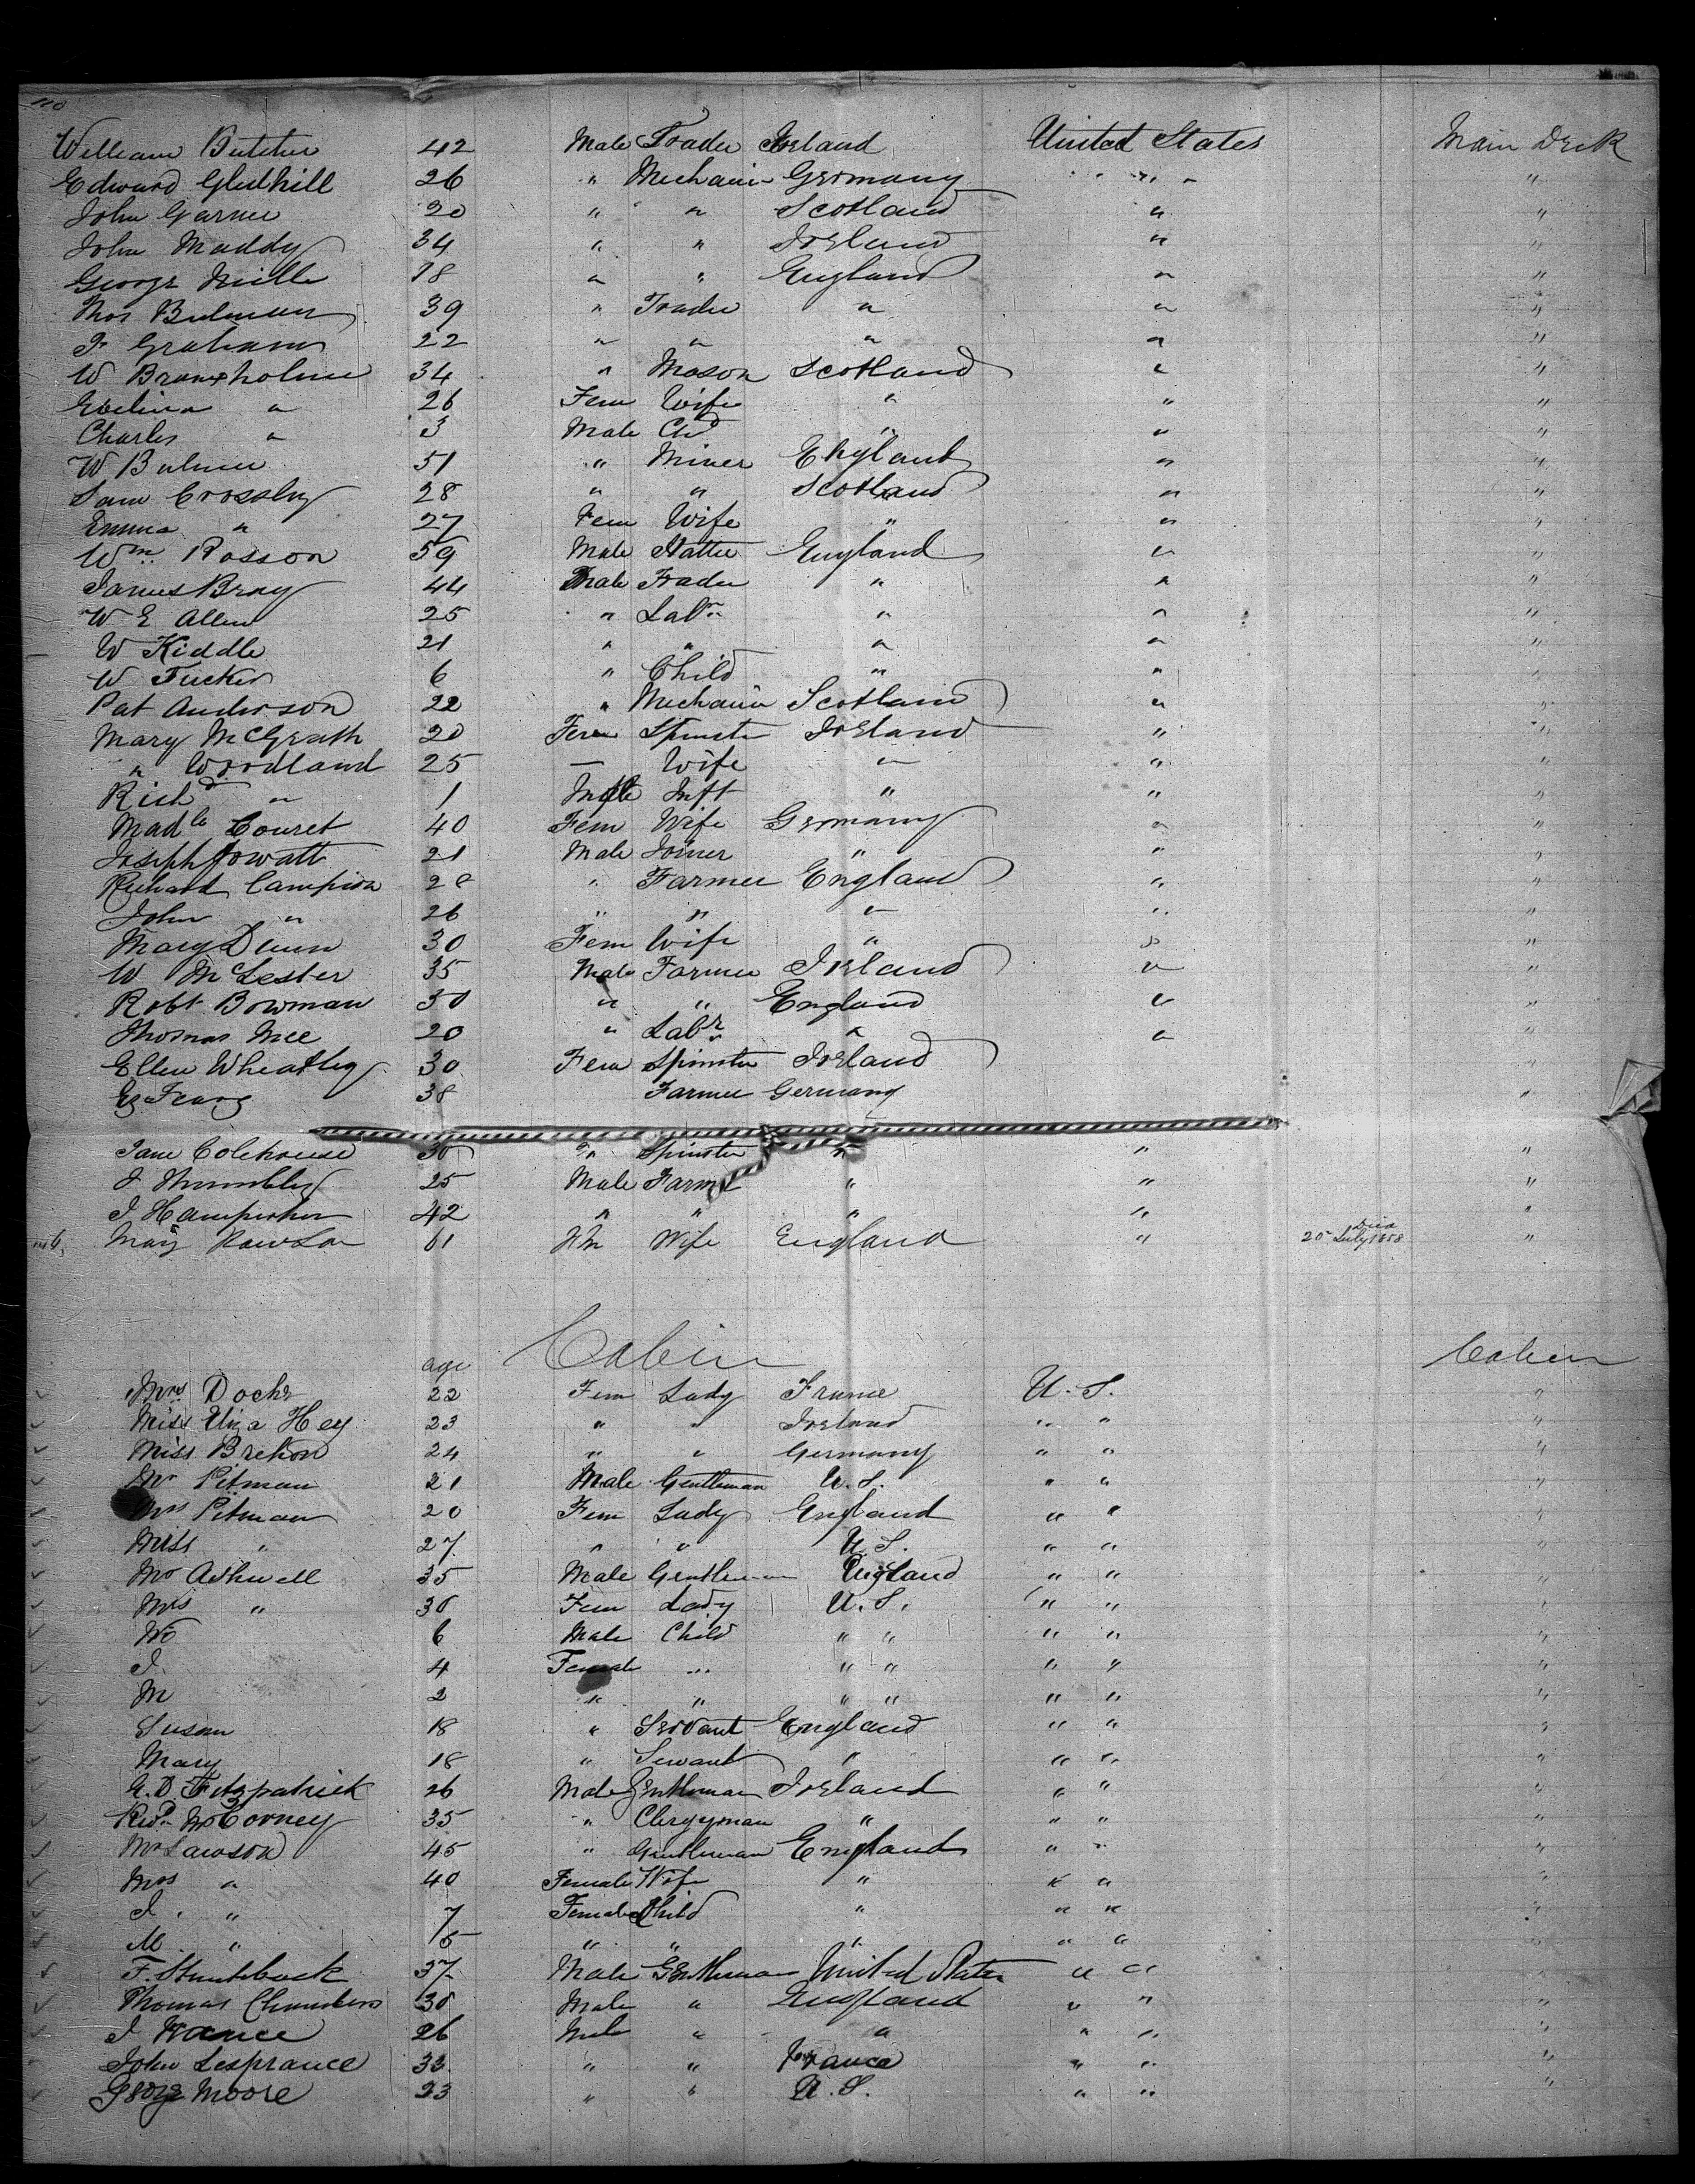 William Butcher 42 Male Trader Ireland United States Main Deck
Edward Gledhill 26 " Mechanic Germany " "
John Garner 20 " " Scotland " "
John Maddy 34 " " Ireland " "
George Mille 18 " " England " "
Thos Bulman 39 " Trader " " "
F Graham 22 " " " " "
W Branxholme 34 " Mason Scotland " "
Evelina " 26 Fem Wife " " "
Charles " 3 Male Chd " " "
W Bulmer 51 " Miner England " "
Sam Crossley 28 " " Scotland " "
Emma " 27 Fem Wife " " "
Wm Rosson 59 Male Hatter England " "
James Bray 44 Male Trader " " "
W E Allen 25 " Labr " " "
W Kiddle 21 " " " " "
W Tucker 6 " Child " " "
Pat Anderson 22 " Mechanic Scotland " "
Mary McGrath 20 Fem Spinster Ireland " "
" Woodland 25 — Wife " " "
Richd " 1 Male Inft " " "
Madle Couret 40 Fem Wife Germany " "
Joseph Jowatt 21 Male Joiner " " "
Richard Campion 28 " Farmer England " "
John " 26 " " " " "
Mary Dunn 30 Fem Wife " " "
W McLester 35 Male Farmer Ireland " "
Robt Bowman 30 " " England " "
Thomas Mee 20 " Labr " " "
Ellen Wheatley 30 Fem Spinster Ireland "
38 Farmer Germany "
Jane Colehouse 30 " Spinster " " "
J Thrumbley 25 Male Farmr " " "
J 42 " " " " "
Mary Rawson 61 Fem Wife England " Died 20 July 1858 "
age Cabin Cabin
Mrs Dochr 22 Fem Lady France U.S. "
Miss Eliza Hey 23 " " Ireland " " "
Miss Breton 24 " " Germany " " "
Mr Pitman 21 Male Gentleman U.S. " " "
Mrs Pitman 20 Fem Lady England " " "
Miss " 27 " " U.S. " " "
Mr Ashwell 35 Male Gentleman England " " "
Mrs " 30 Fem Lady U.S. " " "
Wm 6 Male Child " " " " "
J. 4 Female " " " " " "
M 2 " " " " " " "
Susan 18 " Servant England " " "
Mary 18 " Servant " " " "
G. D. Fitzpatrick 26 Male Gentleman Ireland " " "
Revd Mr Corney 35 " Clergyman " " " "
Mr Lawson 45 " Gentleman England " " "
Mrs " 40 Female Wife " " " "
J. " 7 Female Child " " " "
M. " 5 " " " " " "
F. Stuntebeck 37 Male Gentleman United States " " "
Thomas Chambers 30 Male " England " " "
J 26 Male " " " " "
John Lesprance 33 " " France " " "
George Moore 23 " " U.S. " " "